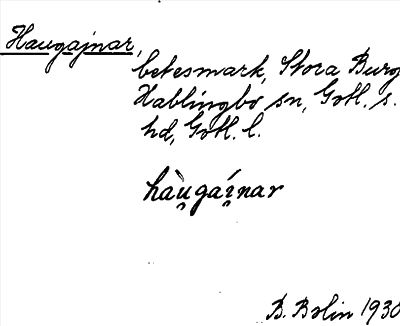 Haugajnar,
betesmark, Stora Burg
Hablingbo sn, Gotl. s.
hd, Gotl. l.
hàu̯gái̯nar
B. Bolin 1930